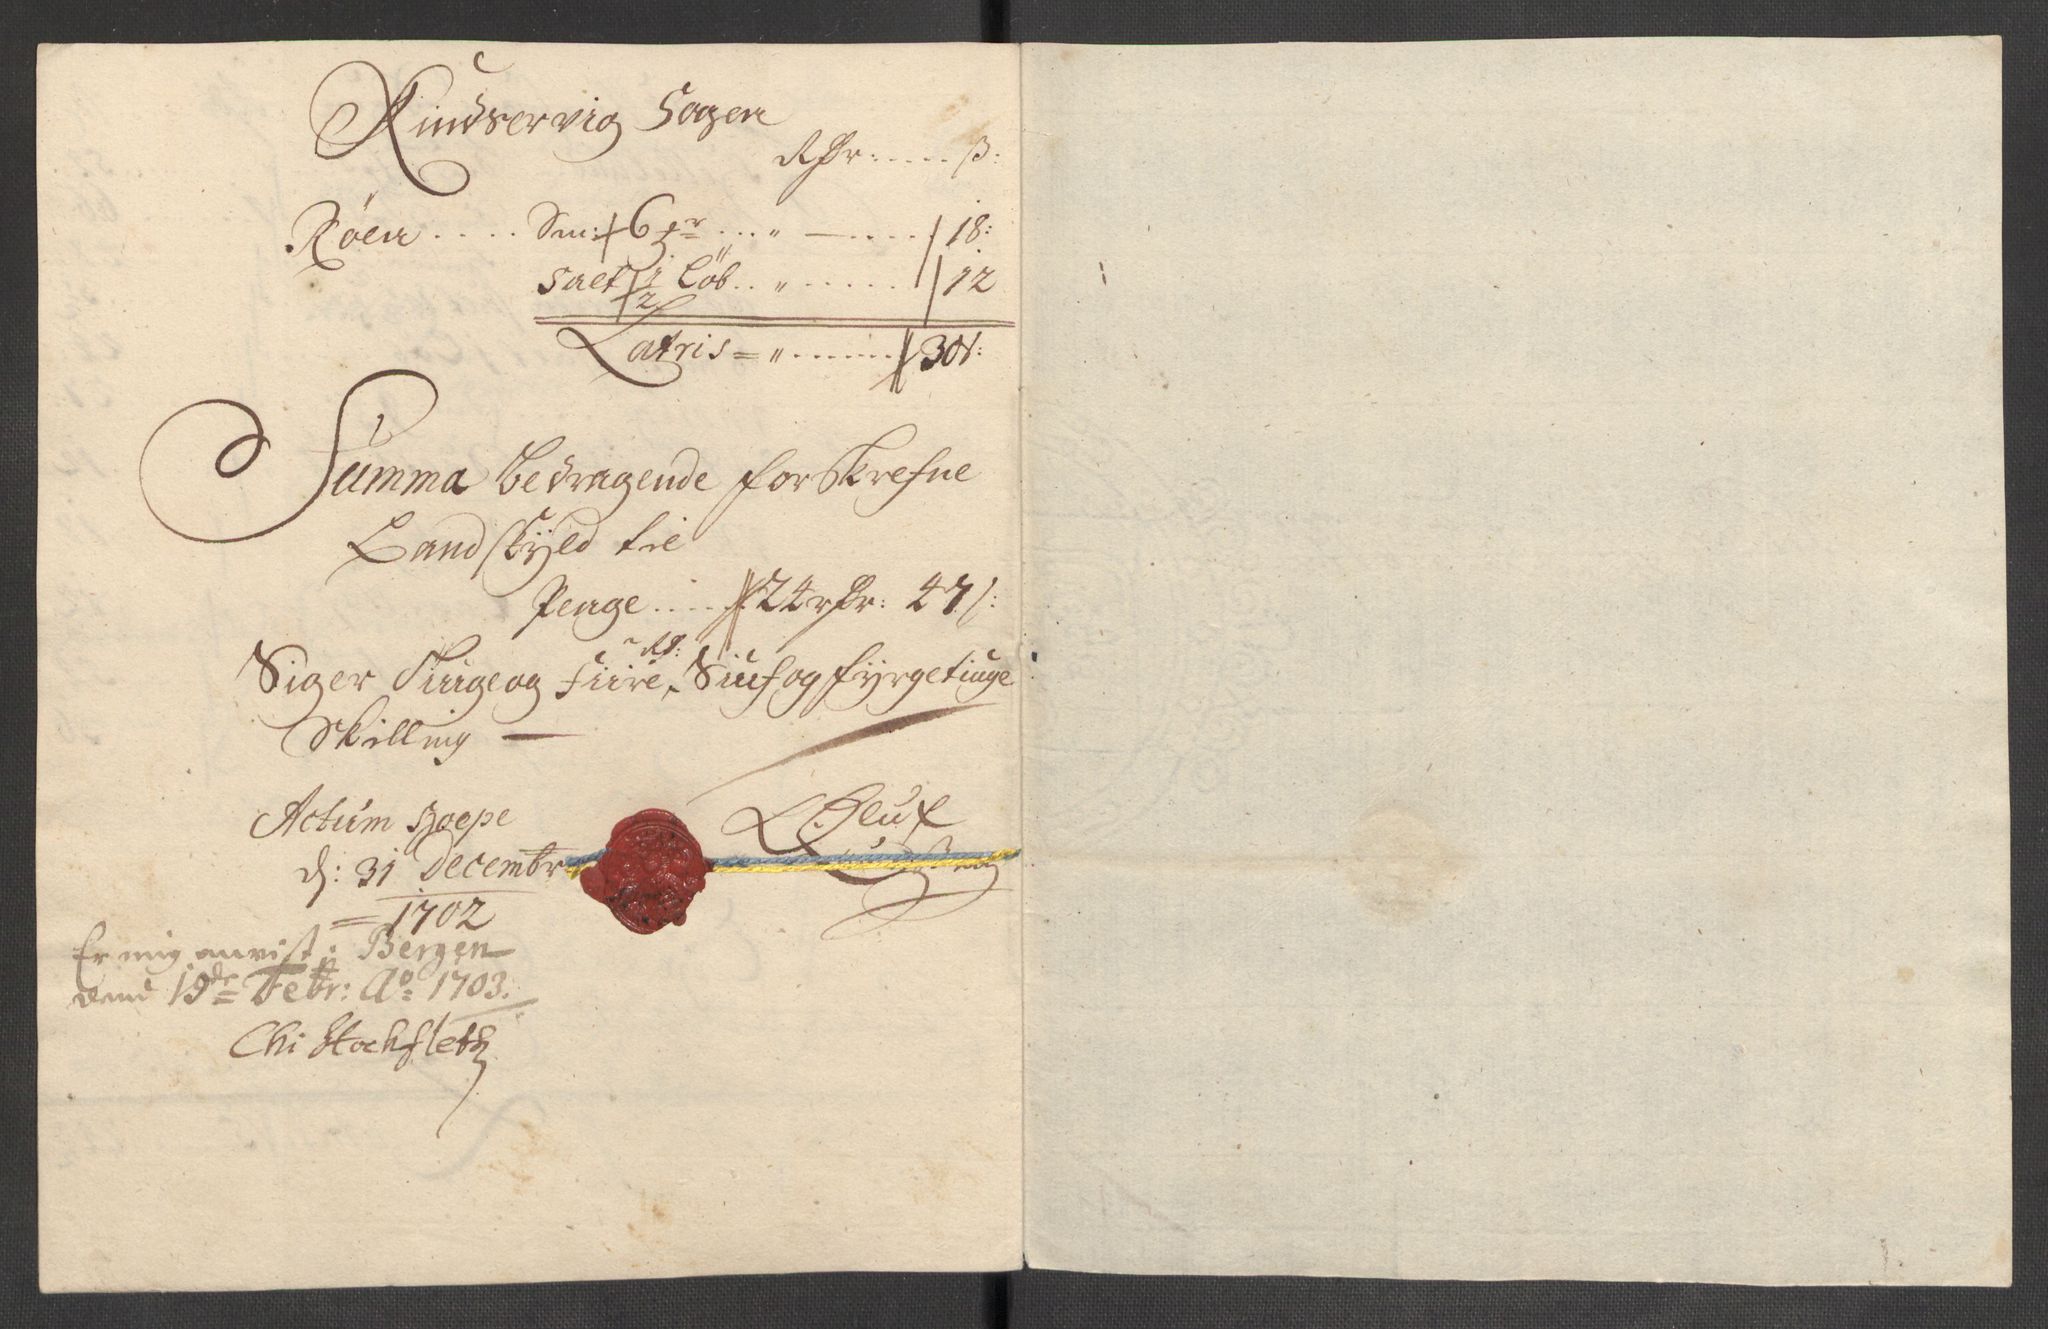 Kindservig Sogen
Rdr: ..... ß:
Röen .... Sm: 6 ... " — .... 18:
Salt ½ Löb .. " ...... 12
Latris = " ...... 30ß:
Summa bedragende forskrefne
Landskyld til
Penge .... 24 rdr: 47 ß:
Siger Tiuge og Fiire rd: Siuf og fyrgetiuge
Skilling —
Actum Hoepe
d: 31 Decembr
= 1702
Er mig anvist i Bergen
dend 19de Febr: Ao: 1703.
Chi Stockfleth